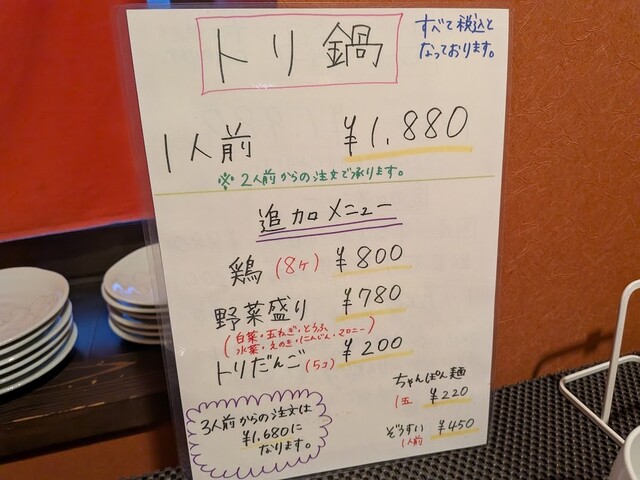 トリ鍋
すべて税込と
なっております。
1人前 ¥1,880
※2人前からの注文で承ります。
追加メニュー
鶏(8ヶ) ¥800
野菜盛り ¥780
(白菜・玉ねぎ・とうふ
水菜・えのき・にんじん・マロニー)
トリだんご(5コ) ¥200
ちゃんぽん麺
1玉 ¥220
ぞうすい ¥450
1人前
3人前からの注文は
¥1,680に
なります。